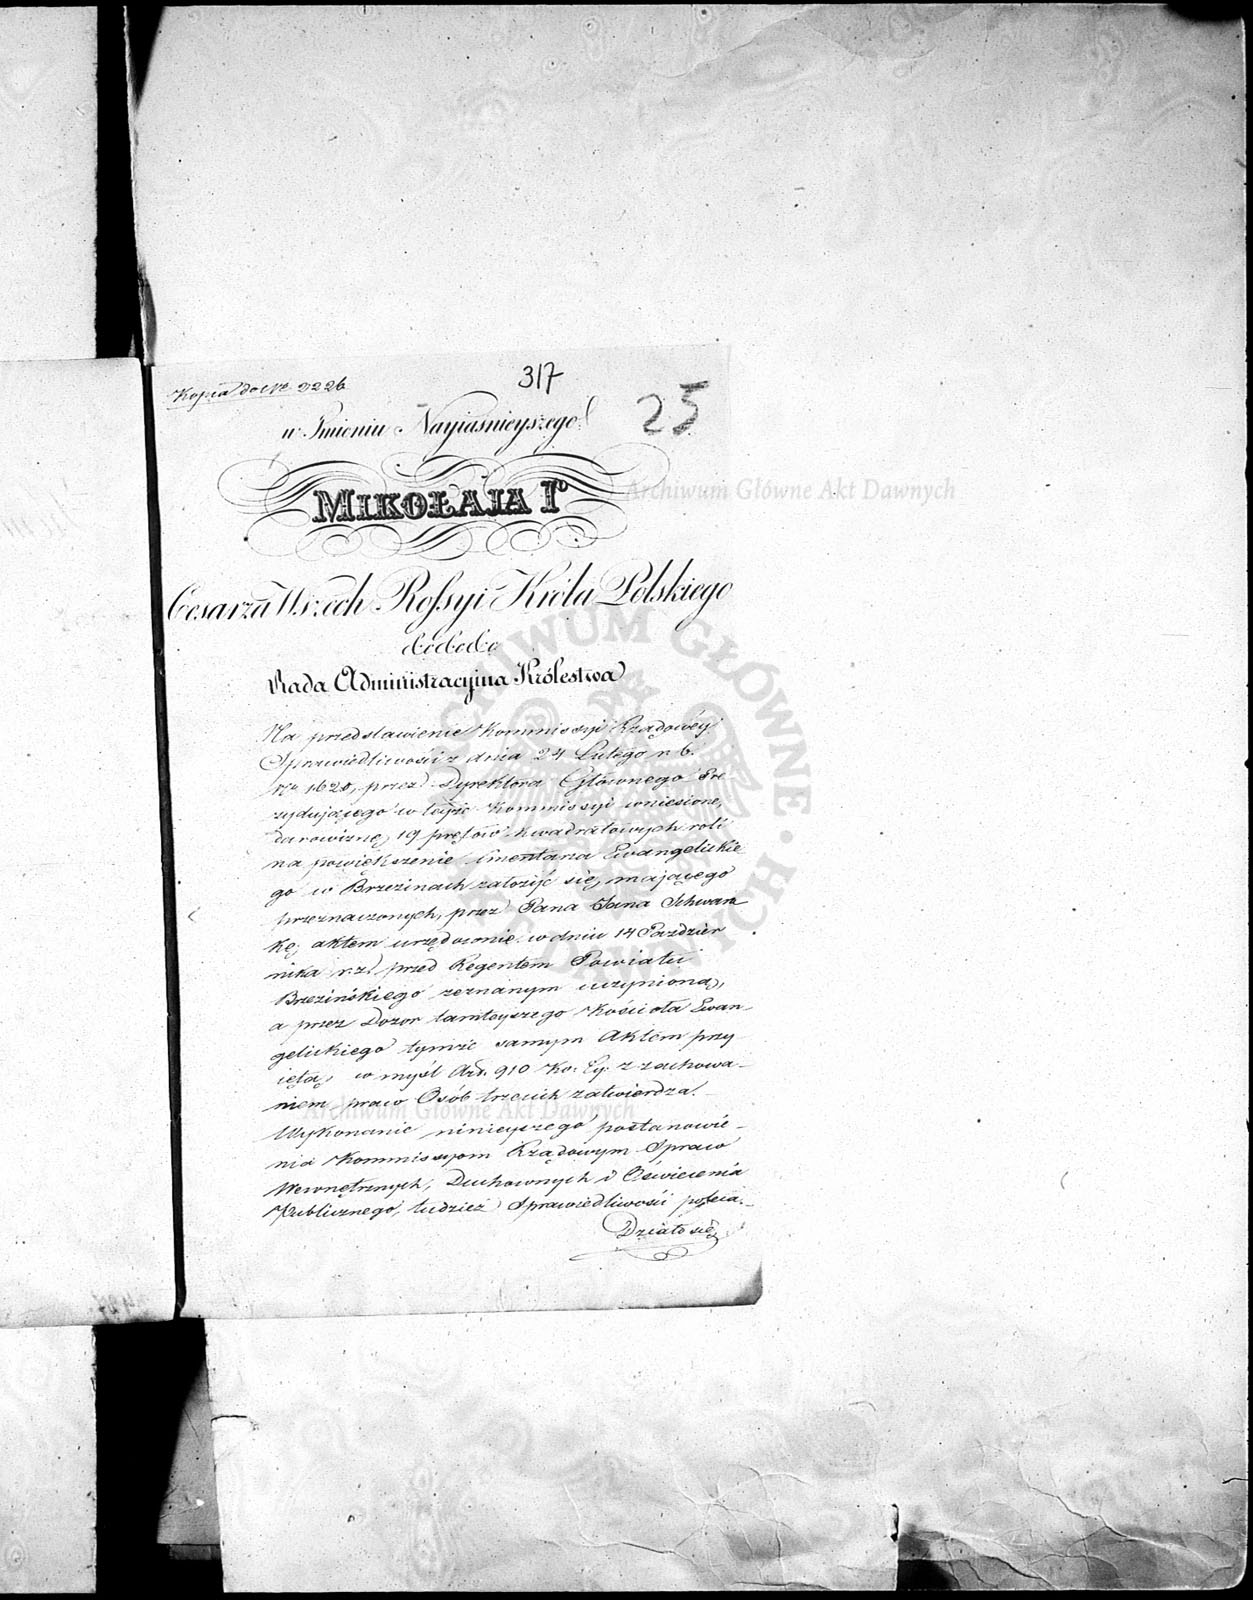 Kopia do Nr 2226
317
25
w Imieniu Nayiaśnieyszego
MIKOŁAJA Igo
Cesarza Wszech Rossyi Króla Polskiego
&c &c &c
Rada Administracyjna Królestwa
Na przedstawienie Kommissyi Rządowéy
Sprawiedliwości z dnia 24 Lutego r. b.
Nr 1620, przez Dyrektora Głównego Pre
zydującego w teyże Kommissyi wniesione,
darowiznę, 19 prętów kwadratowych roli
na powiększenie Cmentarza Ewangelickie
go w Brzezinach założyć się, mającego
przeznaczonych, przez Pana Jana Schwarz
kę aktem urzędownie w dniu 14 Paździer
nika r. z. przed Regentem Powiatu
Brzezińskiego zeznanym uczynioną,
a przez Dozor tamteyszego Kościoła Ewan-
gelickiego tymże samym Aktem przy
iętą, w myśl Art. 910 Ko: Cy: z zachowa-
niem praw Osób trzecich zatwierdza.
Wykonanie ninieyszego postanowie-
nia Kommissyom Rządowym Spraw
Wewnętrznych, Duchownych i Oświecenia
Publicznego, tudzież Sprawiedliwości poleca.
Działo się
Archiwum Główne Akt Dawnych
Archiwum Główne Akt Dawnych
ARCHIWUM GŁÓWNE AKT DAWNYCH